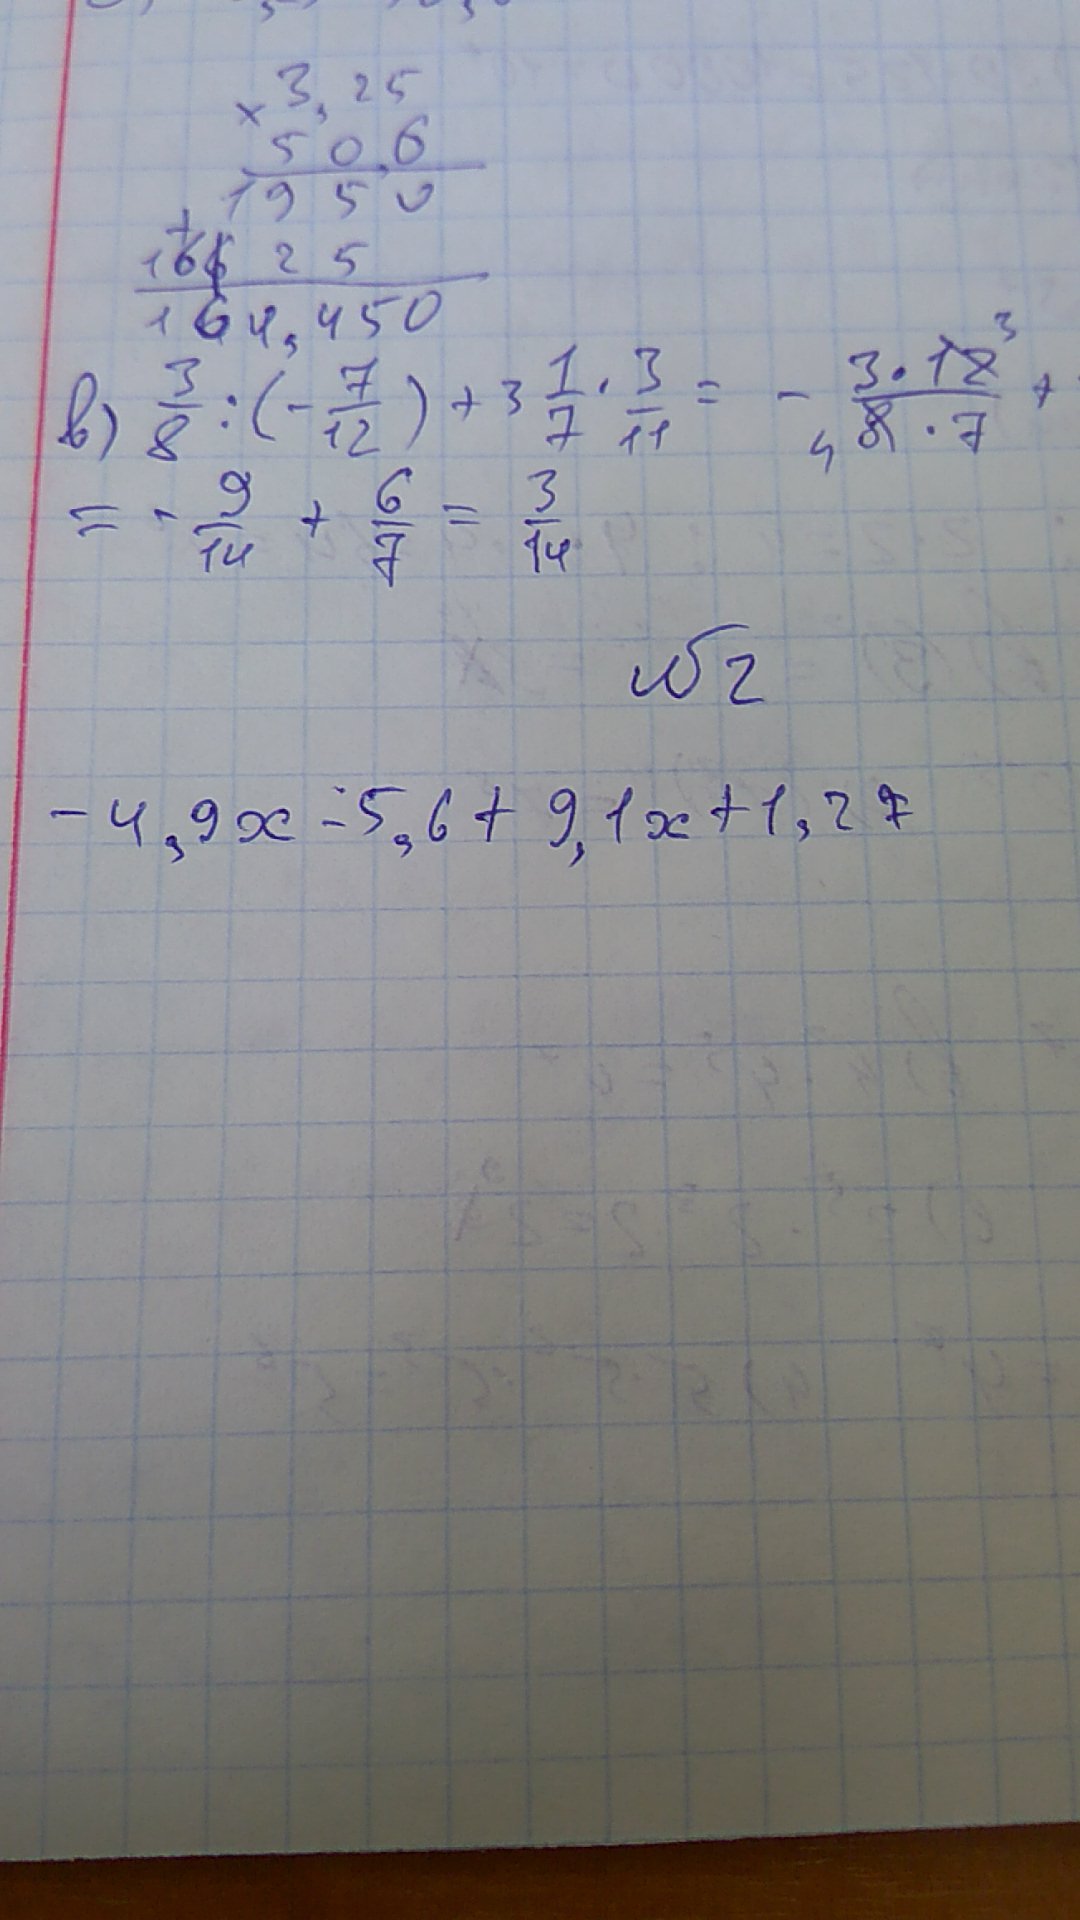 × 3,25
50.6
1950
+
16625
164,450
в) 3/8 : (- 7/12) + 3 1/7 · 3/11 = - 3·12 3 / 4 8·7 +
= - 9/14 + 6/7 = 3/14
№2
-4,9x - 5,6 + 9,1x + 1,27